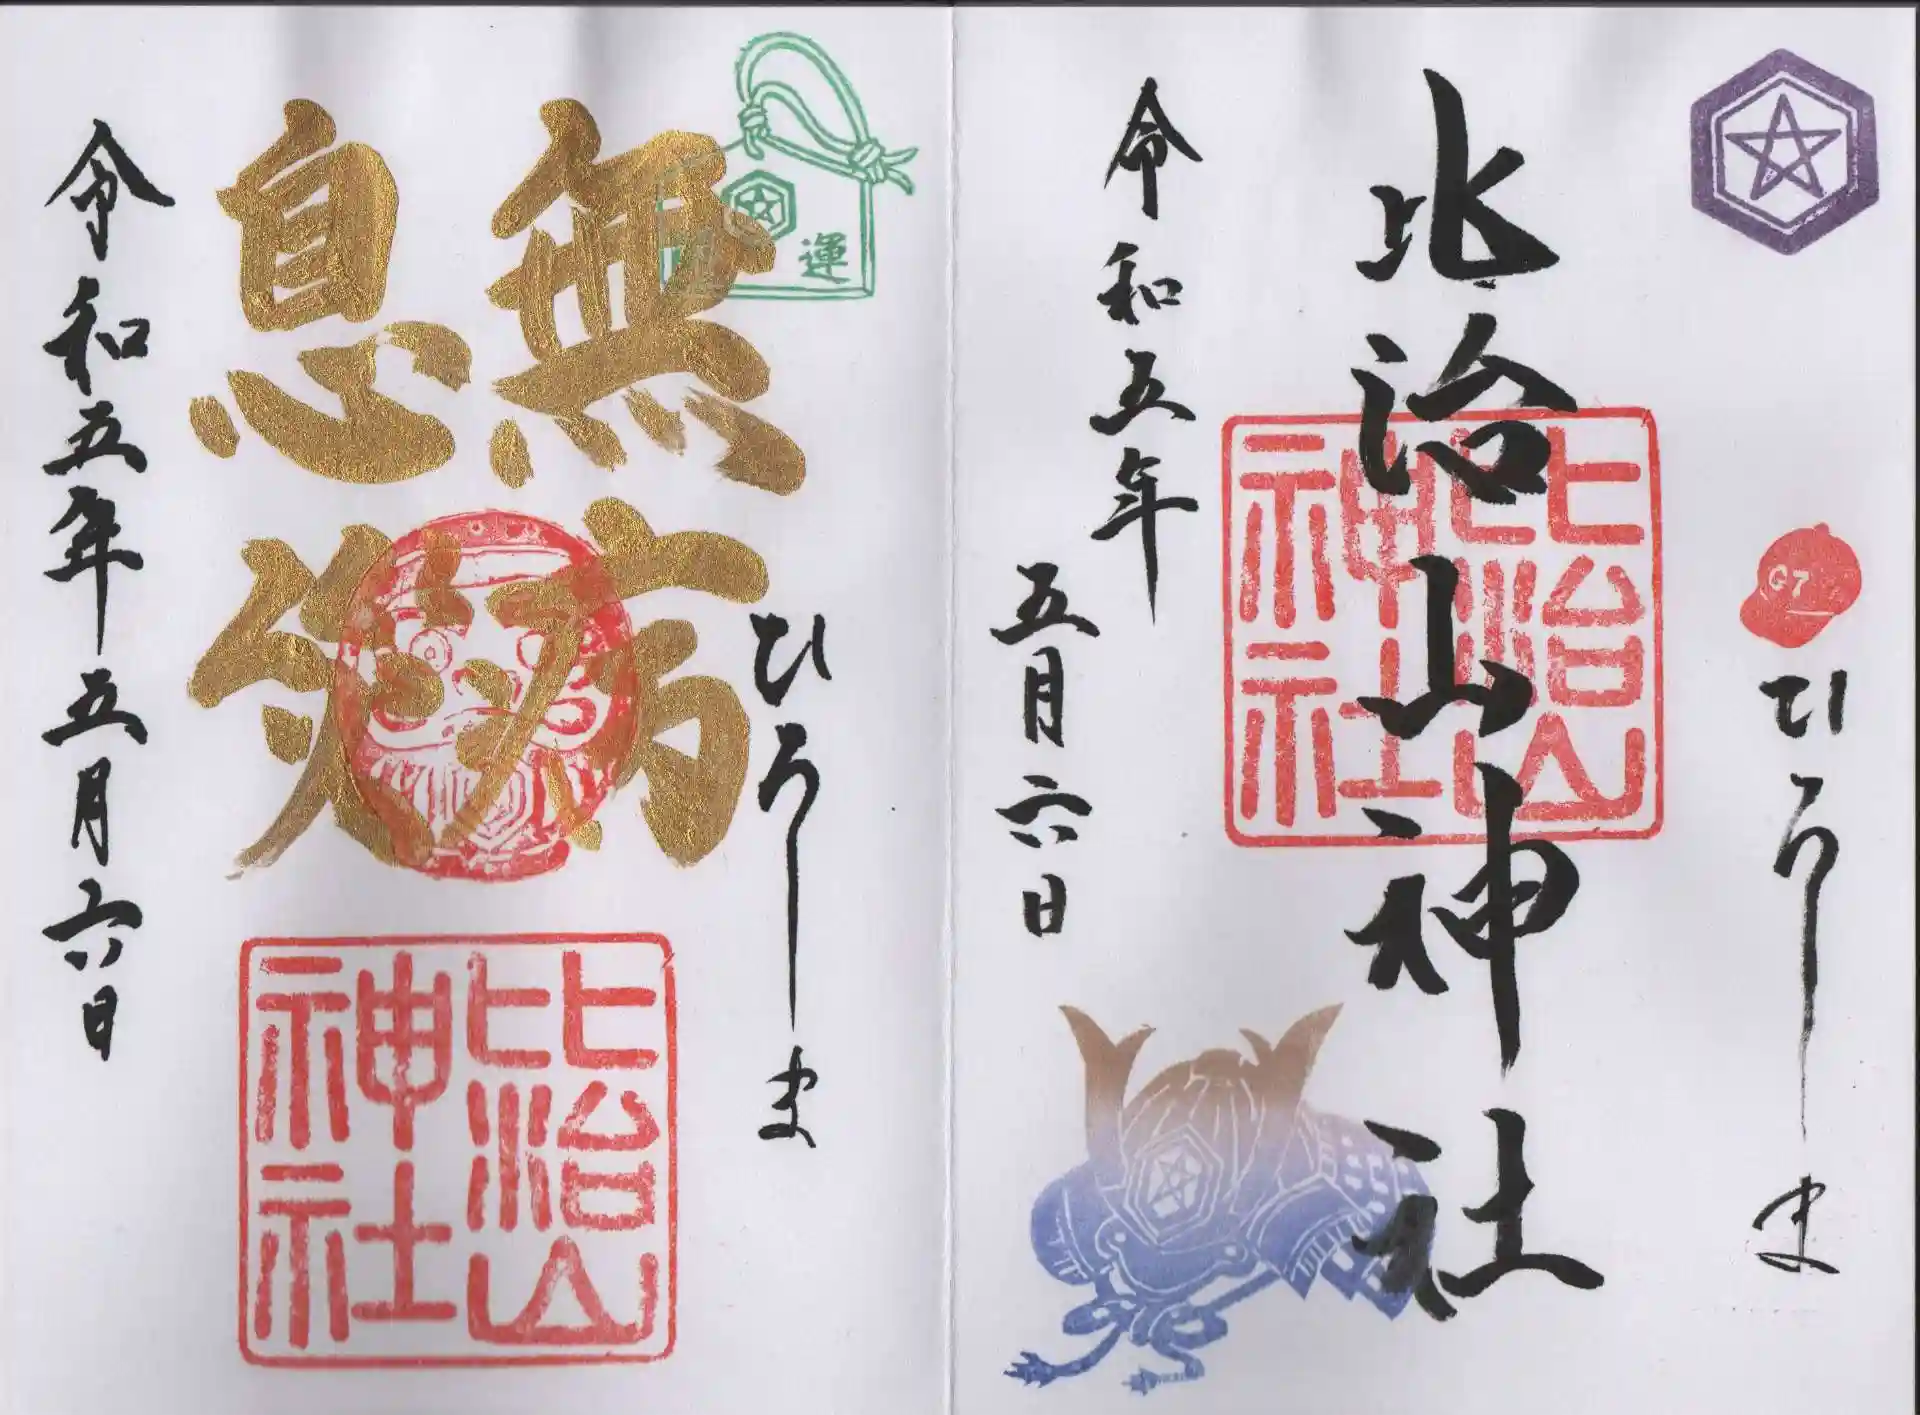 G7
ひろしま
比治山神社
比治山神社
令和五年
五月六日
開運
ひろしま
無病
息災
比治山神社
令和五年五月六日